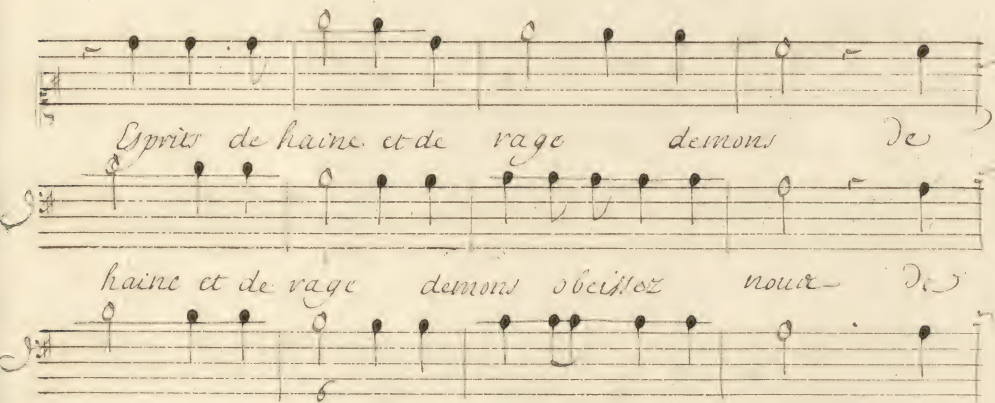 Esprits de haine et de rage demons de
haine et de rage demons obeissez nous de
6